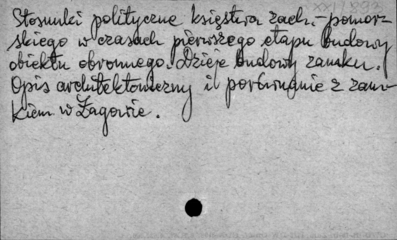 Stosunki polityczne księstwa zach.-pomor-
skiego w czasach pierwszego etapu budowy
obiektu obronnego. Dzieje budowy zamku.
Opis architektoniczny i porównanie z zam-
kiem w Żagowie.